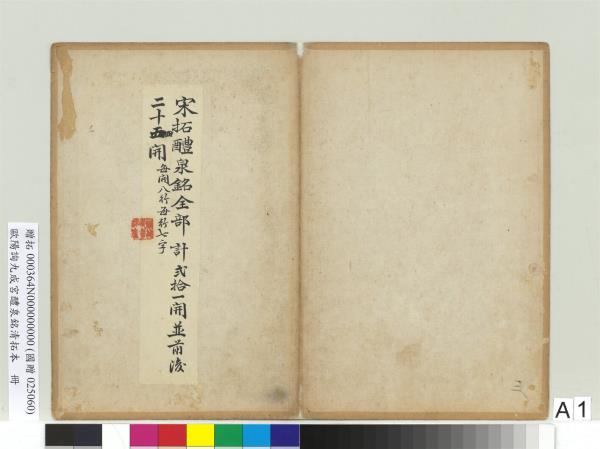 宋拓醴泉銘全部計貳拾一開並前後
二十五開
每開八行每行七字
三
贈拓 000364N000000000 (國贈 025060)
歐陽詢九成宮醴泉銘清拓本 冊
A 1